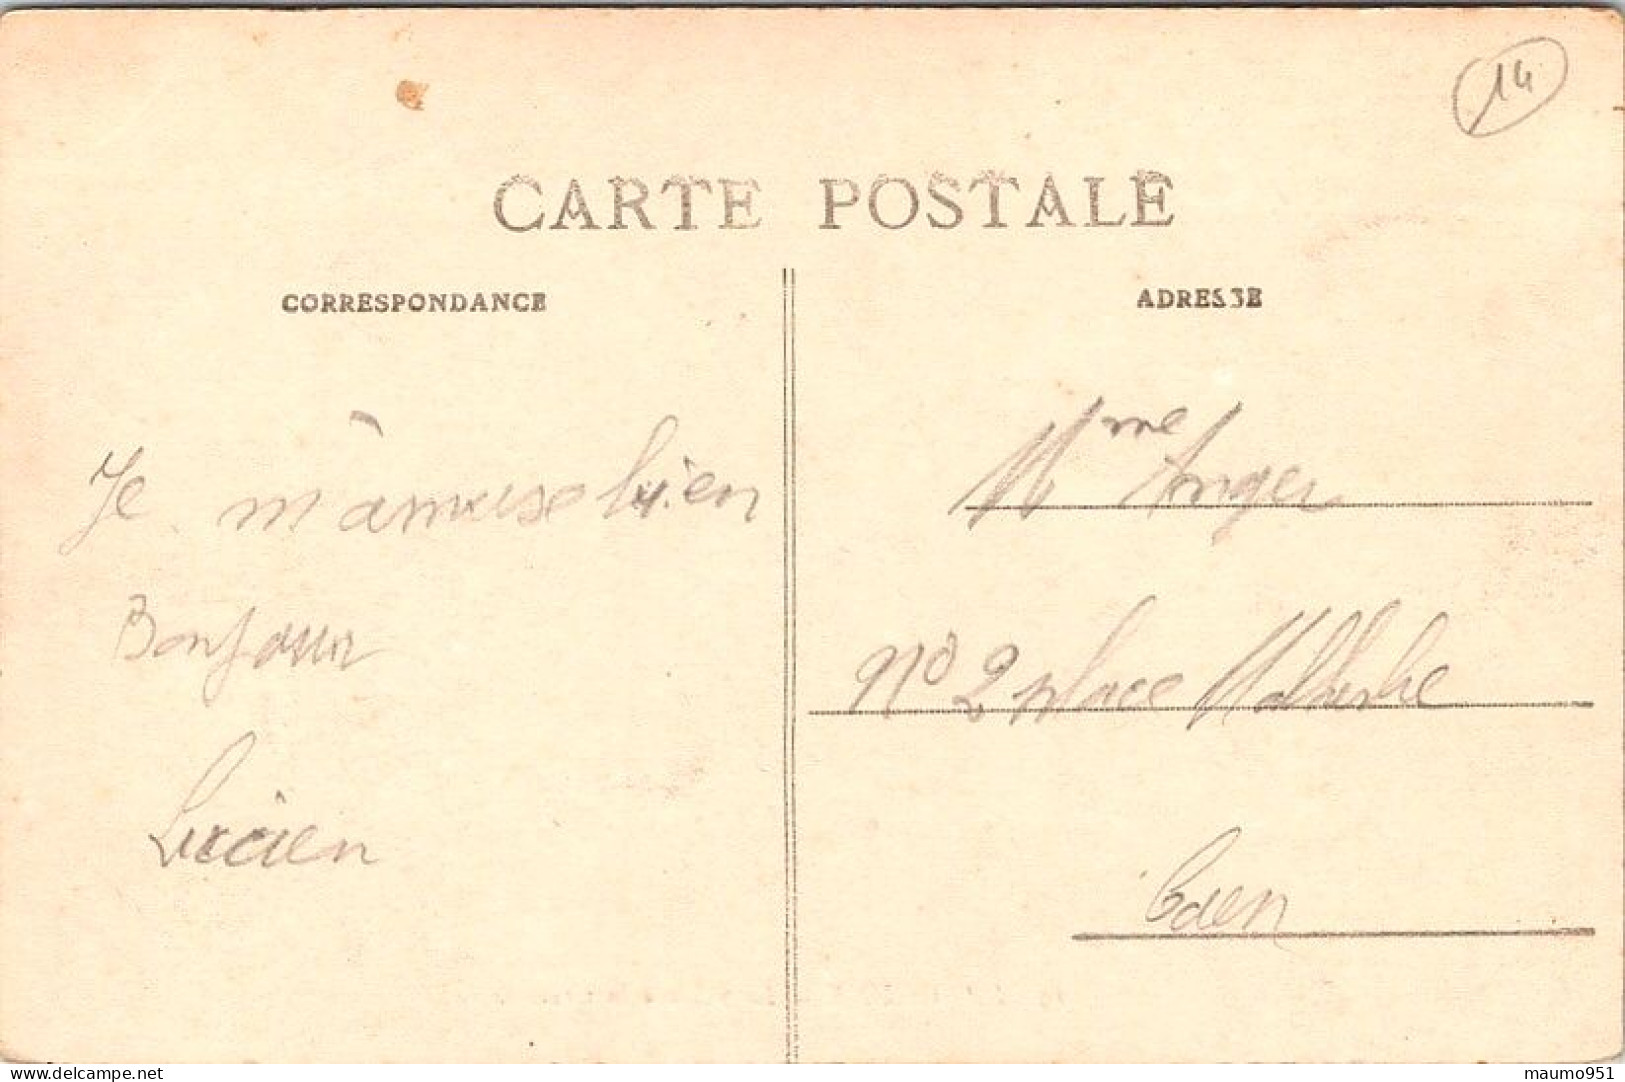 14
CARTE POSTALE
CORRESPONDANCE
ADRESSE
Je m'amuse bien
Bonjour
Lucien
Mme Anger
No 2 place Malherbe
Caen
www.delcampe.net
maumo951